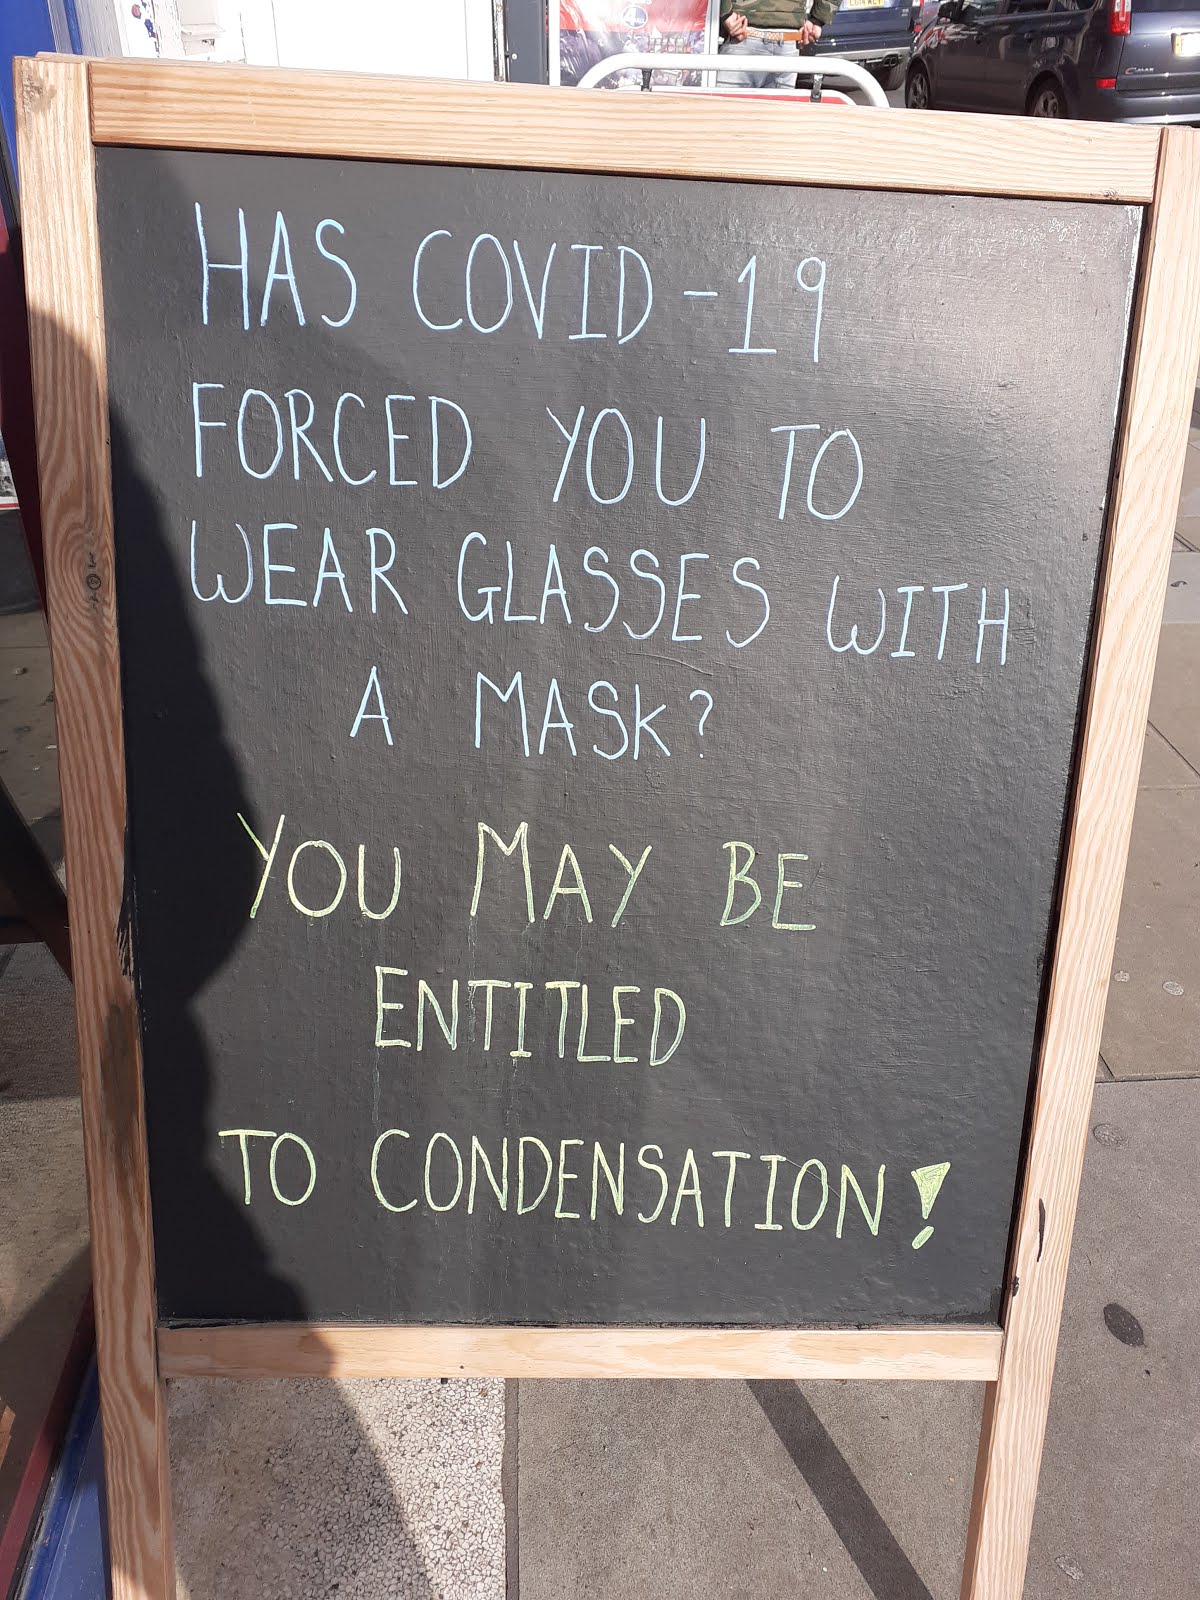 HAS COVID-19
FORCED YOU TO
WEAR GLASSES WITH
A MASK?
YOU MAY BE
ENTITLED
TO CONDENSATION!